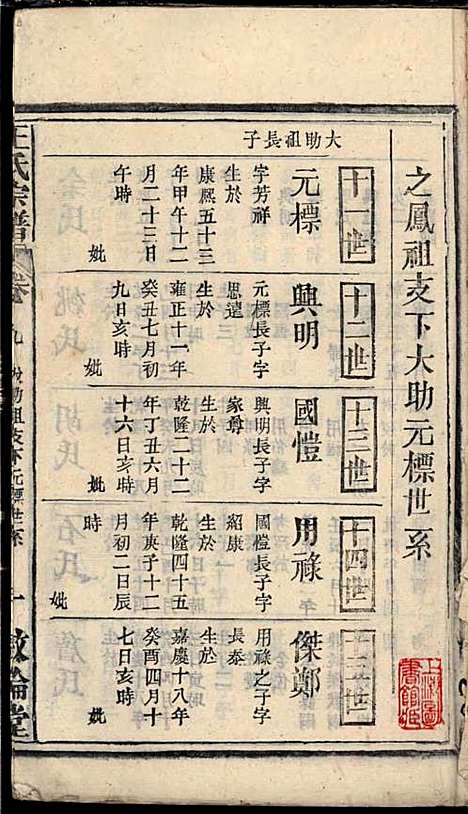 之鳳祖支下大助元標世系
十一世
十二世
十三世
十四世
十五世
大助祖長子
元標
字芳祥
生於
康熙五十三
年甲午十二
月二十三日
午時
妣
興明
元標長子字
思遠
生於
雍正十一年
癸丑七月初
九日亥時
妣
國愷
興明長子字
家尊
生於
乾隆二十二
年丁丑六月
十六日亥時
妣
用祿
國愷長子字
紹康
生於
乾隆四十五
年庚子十二
月初二日辰
時
妣
傑鄭
用祿之子字
長泰
生於
嘉慶十八年
癸酉四月十
七日亥時
妣
王氏宗譜
卷九
大助祖支下元標世系
一
敦倫堂